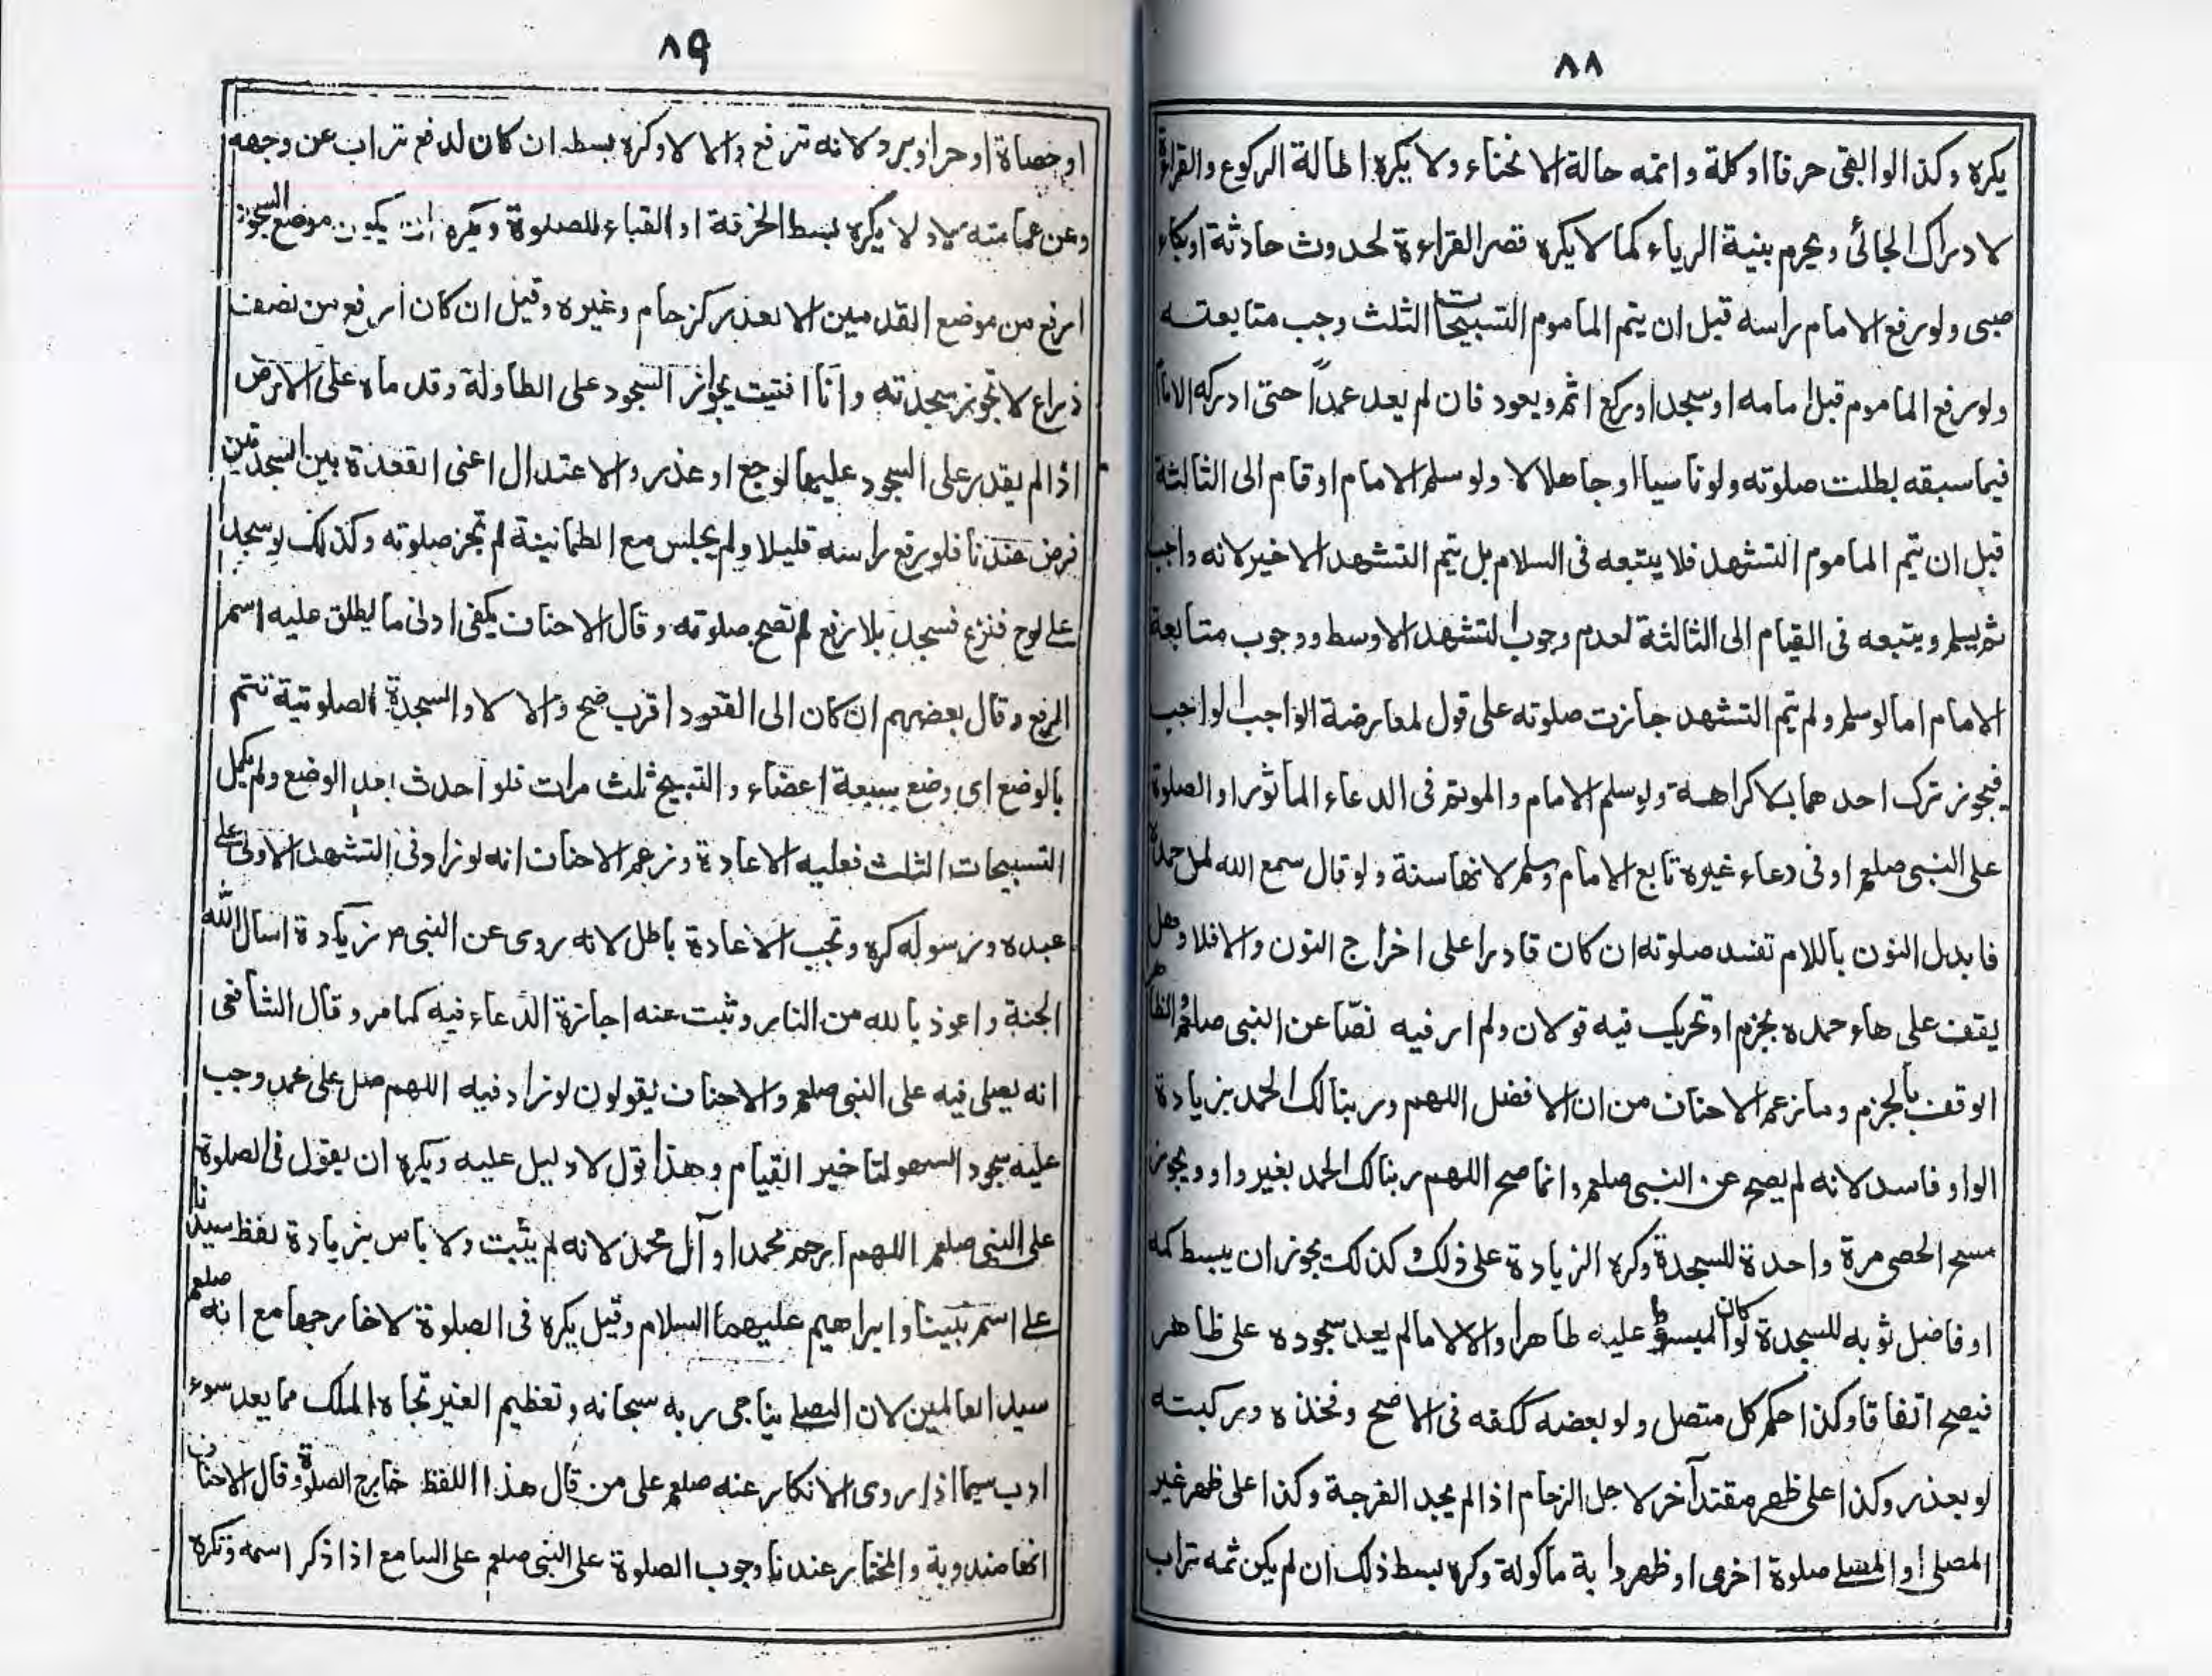 ٨٨
يكره وكذا لو ابقى حرفا او كلمة واتمه حالة الانحناء ولا يكره اطالة الركوع والقراءة
لادراك الجائى ويحرم بنية الرياء كما لا يكره قصر القراءة لحدوث حادثة او بكاء
صبى ولو رفع الامام راسه قبل ان يتم الماموم التسبيحات الثلث وجب متابعته
ولو رفع الماموم قبل امامه او سجد او ركع اثم ويعود فان لم يعد عمداً حتى ادركه الامام
فيما سبقه بطلت صلوته ولو ناسيا او جاهلا لا ولو سلم الامام او قام الى الثالثة
قبل ان يتم الماموم التشهد فلا يتبعه فى السلام بل يتم التشهد الاخير لانه واجب
ثم يسلم ويتبعه فى القيام الى الثالثة لعدم وجوب التشهد الاوسط ووجوب متابعة
الامام اما لو سلم ولم يتم التشهد جازت صلوته على قول لمعارضة الواجب الواجب
فيجوز ترك احدهما بلا كراهة ولو سلم الامام والموتم فى الدعاء الماثور او الصلوة
على النبى صلعم او فى دعاء غيره تابع الامام وسلم لانها سنة ولو قال سمع الله لمل حمده
فابدل النون باللام تفسد صلوته ان كان قادرا على اخراج النون والا فلا وهل
يقف على هاء حمده بجزم او تحريك فيه قولان ولم ار فيه نصّا عن النبى صلعم الظاهر
الوقف بالجزم وما زعم الاحناف من ان الافضل اللهم وربنا لك الحمد بزيادة
الواو فاسد لانه لم يصح عن النبى صلعم وانما صح اللهم ربنا لك الحمد بغير واو ويجوز
مسح الحصى مرة واحدة للسجدة وكره الزيادة على ذلك وكذلك يجوز ان يبسط كمه
او فاضل ثوبه للسجدة لو كان المبسوط عليه طاهرا والا لا مالم يعد سجوده على ظاهر
فيصح اتفاقا وكذا حكم كل متصل ولو بعضه ككفه فى الاصح وفخذه وركبته
لو بعذر وكذا على ظهر مقتد آخر لاجل الزحام اذا لم يجد الفرجة وكذا على ظهر غير
المصلى او المصلے صلوة اخرى او ظهر دابة ماكولة وكره بسط ذلك ان لم يكن ثمه تراب
٨٩
او حصاة او حر او برد لانه ترفع والا لا وكره بسطه ان كان لدفع تراب عن وجهه
وعن عمامته لا ولا يكره بسط الخرقة او القباء للصلوة ويكره ان يكون موضع السجود
ارفع من موضع القدمين الا بعذر كزحام وغيره وقيل ان كان ارفع من نصف
ذراع لا تجوز سجدته وانا افتيت بجواز السجود على الطاولة وقدماه على الارض
اذا لم يقدر على السجود عليها لوجع او عذر والاعتدال اعنى القعدة بين السجدتين
فرض عندنا فلو رفع راسه قليلا ولم يجلس مع الطمانينة لم تجز صلوته وكذلك لو سجد
علے لوح فنزع فسجد بلا رفع لم تصح صلوته وقال الاحناف يكفى ادنى ما يطلق عليه اسم
الرفع وقال بعضهم ان كان الى القعود اقرب صح والا لا والسجدة الصلوتية تتم
بالوضع اى وضع سبعة اعضاء والتسبيح ثلث مرات فلو احدث بعد الوضع ولم يكمل
التسبيحات الثلث فعليه الاعادة وزعم الاحناف انه لو زاد فى التشهد الاولى على
عبده ورسوله كره وتجب الاعادة باطل لانه روى عن النبى ص زيادة اسال الله
الجنة واعوذ بالله من النار وثبت عنه اجازة الدعاء فيه كما مر وقال الشافعى
انه يصلى فيه على النبى صلعم والاحناف يقولون لو زاد فيه اللهم صل على محمد وجب
عليه سجود السهو لتاخير القيام وهذا قول لا دليل عليه ويكره ان يقول فى الصلوة
على النبى صلعم اللهم ارحم محمدا و آل محمد لانه لم يثبت ولا باس بزيادة لفظ سيدنا
علے اسم نبينا وابراهيم عليهما السلام وقيل يكره فى الصلوة لا خارجها مع انه صلعم
سيد العالمين لان المصلے يناجى ربه سبحانه وتعظيم الغير تجاه الملك مما يعد سوء
ادب سيما اذا روى الانكار عنه صلعم على من قال هذا اللفظ خارج الصلوة وقال الاحناف
انها مندوبة والمختار عندنا وجوب الصلوة على النبى صلعم على السامع اذا ذكر اسمه وتكره